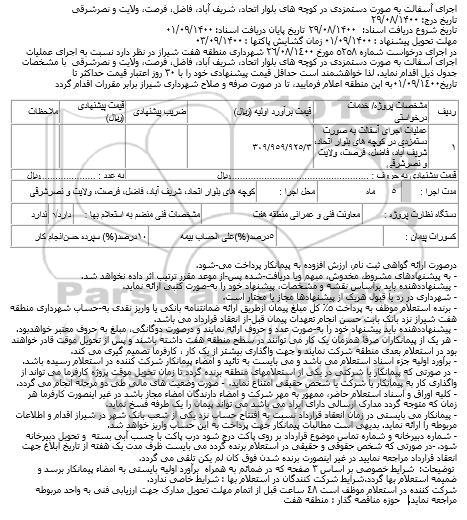 اجرای آسفالت به صورت دستمزدی در کوچه های بلوار اتحاد، شریف آباد، فاضل، فرصت، ولایت و نصرشرقی
تاریخ درج: ۲۹/۰۸/۱۴۰۰
تاریخ شروع دریافت اسناد: ۲۹/۰۸/۱۴۰۰ تاریخ پایان دریافت اسناد: ۰۱/۰۹/۱۴۰۰
مهلت تحویل پیشنهاد : ۰۱/۰۹/۱۴۰۰ زمان گشایش پاکتها : ۰۳/۰۹/۱۴۰۰
در اجرای درخواست شماره ۵۲۵۸ مورخ ۲۶/۰۸/۱۴۰۰ شهرداری منطقه هفت شیراز در نظر دارد نسبت به اجرای عملیات
اجرای آسفالت به صورت دستمزدی در کوچه های بلوار اتحاد، شریف آباد، فاضل، فرصت، ولایت و نصرشرقی با مشخصات
جدول ذیل اقدام نماید، لذا خواهشمند است حداقل قیمت پیشنهادی خود را با ۳۰ روز اعتبار قیمت حداکثر تا
تاریخ۰۱/۰۹/۱۴۰۰به این منطقه اعلام فرمایید، تا در صورت صرفه و صلاح شهرداری شیراز برابر مقررات اقدام گردد
ردیف مشخصات پروژه/ خدمات درخواستی قیمت برآورد اولیه (ریال) ضریب پیشنهادی قیمت پیشنهادی (ریال) ملاحظات
۱ عملیات اجرای آسفالت به صورت
دستمزدی در کوچه های بلوار اتحاد،
شریف آباد، فاضل، فرصت، ولایت
و نصرشرقی
۳۰۹/۹۵۹/۹۲۵/۳
قیمت پیشنهادی به حروف : ریال به عدد : ریال
مدت اجرا : ۵ ماه محل اجرا : کوچه های بلوار اتحاد، شریف آباد، فاضل، فرصت، ولایت و نصرشرقی
دستگاه نظارت پروژه : معاونت فنی و عمرانی منطقه هفت مشخصات فنی منضم به استعلام بها : دارد ندارد
کسورات پیمان : ۵درصد(%)علی الحساب بیمه ۱۰درصد(%) سپرده حسن‌انجام کار
درصورت ارائه گواهی ثبت نام، ارزش افزوده به پیمانکار پرداخت می-شود.
- به پیشنهادهای مشروط، مخدوش، مبهم ویا دریافت-شده پس‌از موعد مقرر ترتیب اثر داده نخواهد شد.
- پیشنهاددهنده باید براساس نقشه و مشخصات، پیشنهاد خود را به-صورت کتبی ارائه نماید.
- شهرداری در رد یا قبول هریک از پیشنهادها مجاز یا مختار است.
- برنده استعلام موظف به پرداخت ۵% کل مبلغ پیمان ازطریق ارائه ضمانتنامه بانکی یا واریز نقدی به-حساب شهرداری منطقه
هفت شیراز نزد بانک بابت حسن انجام تعهدات پیمان قبل‌از انعقاد قرارداد می باشد.
- پیشنهاددهنده باید پیشنهاد خود را به-صورت عدد و حروف ارائه نمایند و درصورت دوگانگی، مبلغ به حروف معتبر خواهدبود.
- هر یک از پیمانکاران صرفا همزمان یک کار می توانند در سطح منطقه هفت داشته باشند و پس از تحویل موقت قادر خواهند
بود در استعلام بعدی منطقه شرکت نمایند و جهت واگذاری بیشتر از یک کار ، کارفرما تصمیم گیری می کند.
- برآورد اولیه جزء اسناد استعلام می باشد و می بایست به تائید و امضاء پیمانکار شرکت کننده در استعلام رسیده باشد.
- در صورتی که پیمانکار یا شرکتی در یکی از استعلامهای منطقه برنده گردد تا زمان تحویل موقت پروژه کارفرما می تواند از
واگذاری کار به پیمانکار یا شرکت یا شخص حقیقی امتناع نماید. - صورت وضعیت های مالی طی دو مرحله انجام می گردد.
- کلیه اوراق و اسناد استعلام حاضر، ممهور به مهر شرکت و امضاء دارندگان امضاء مجاز باشد در غیر اینصورت کارفرما هر
زمان که متوجه گردد مدارک ارسالی دارای ایراد می باشد می تواند پیمان را یک طرفه فسخ نماید.
- پیمانکار می بایستی در زمان انعقاد قرارداد نسبت به افتتاح حساب نزد یکی از شعب بانک شهر در شیراز اقدام و اطلاعات
مربوطه را ارائه نماید، بدیهی است مطالبات پیمانکار جهت پرداخت به این حساب واریز خواهد شد.
- شماره دبیرخانه و شماره تماس موضوع قرارداد بر روی پاکت درج شود درب پاکت با چسب آبی بسته و تحویل دبیرخانه
شود. -در صورتی که شخص حقوقی و حقیقی در استعلام برنده گردد می بایست ظرف مدت یک هفته از تاریخ ابلاغ جهت
انعقاد قرارداد مراجعه نمایید در غیر اینصورت برنده شدن فوق کان لم یکن تلقی می گردد.
توضیحات: شرایط خصوصی بر اساس ۳ صفحه که در ضمائم به همراه برآورد اولیه بایستی به امضاء پیمانکار برسد و
ضمیمه استعلام بها گردد.شرایط شرکت کنندگان در استعلام بها : شرایط خاصی ندارد.
شرکت کننده در استعلام موظف است ۴۸ ساعت قبل از اتمام مهلت تحویل مدارک جهت ارزیابی فنی به واحد مربوطه
مراجعه نماید| حوزه مناقصه گذار : منطقه هفت